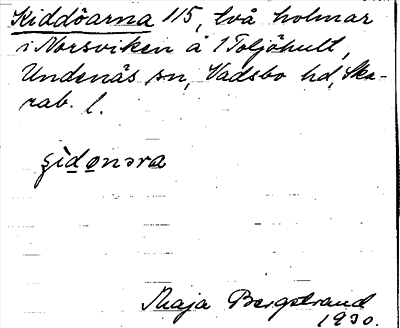 Kiddöarna 115, två holmar
i Norsviken å 1 Toljöhult,
Undenäs sn, Vadsbo hd, Ska-
rab. l.
şìdønəra
Maja Bergstrand
1930.